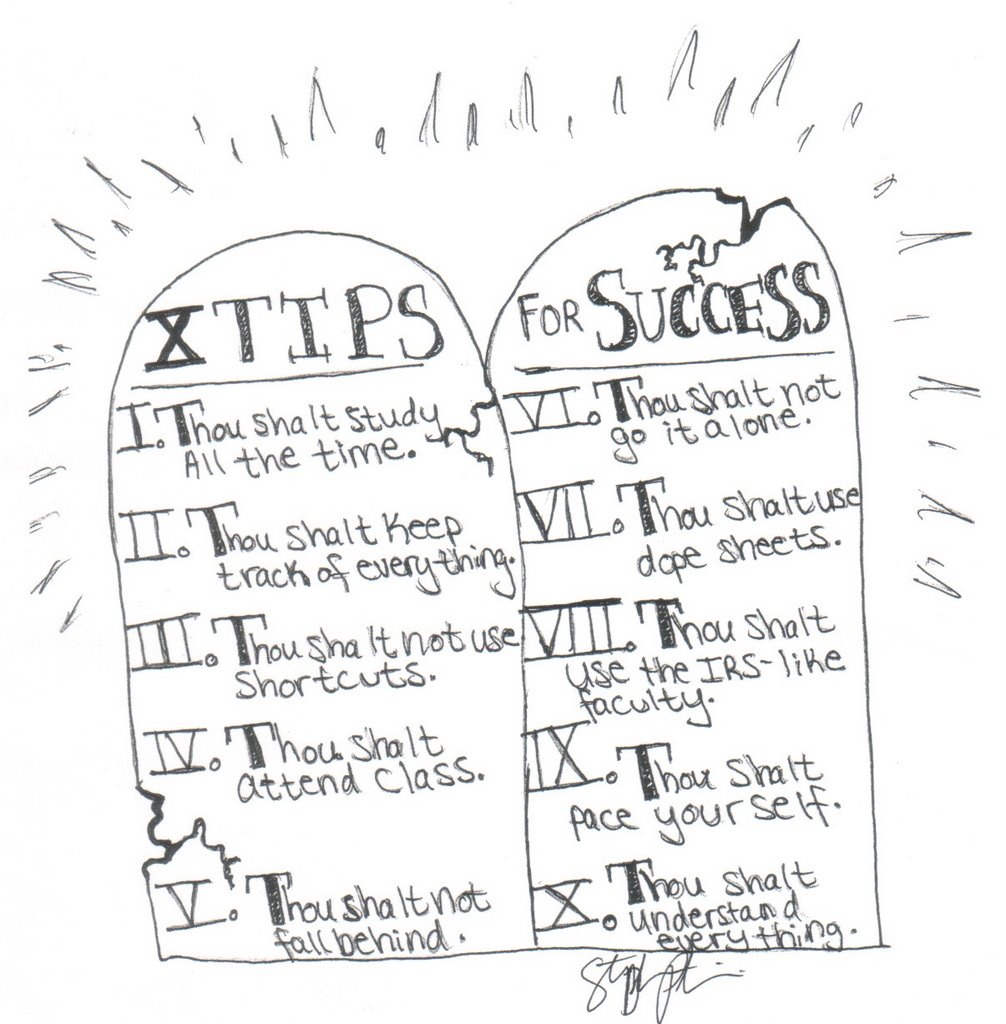 X TIPS
I. Thou shalt study
All the time.
II. Thou shalt keep
track of everything.
III. Thou shalt not use
shortcuts.
IV. Thou shalt
attend class.
V. Thou shalt not
fall behind.
FOR SUCCESS
VI. Thou shalt not
go it alone.
VII. Thou shalt use
dope sheets.
VIII. Thou shalt
use the IRS-like
faculty.
IX. Thou shalt
pace yourself.
X. Thou shalt
understand
everything.